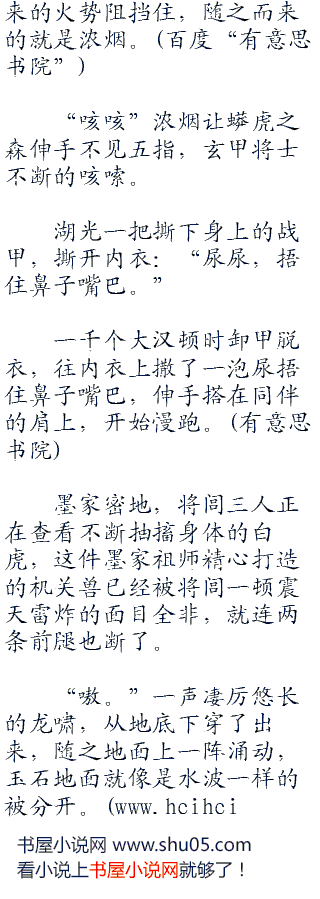 来的火势阻挡住，随之而来
的就是浓烟。(百度“有意思
书院”)
“咳咳”浓烟让蟒虎之
森伸手不见五指，玄甲将士
不断的咳嗦。
湖光一把撕下身上的战
甲，撕开内衣：“尿尿，捂
住鼻子嘴巴。”
一千个大汉顿时卸甲脱
衣，往内衣上撒了一泡尿捂
住鼻子嘴巴，伸手搭在同伴
的肩上，开始慢跑。(有意思
书院)
墨家密地，将闾三人正
在查看不断抽搐身体的白
虎，这件墨家祖师精心打造
的机关兽已经被将闾一顿震
天雷炸的面目全非，就连两
条前腿也断了。
“嗷。”一声凄厉悠长
的龙啸，从地底下穿了出
来，随之地面上一阵涌动，
玉石地面就像是水波一样的
被分开。(www.hcihci
书屋小说网 www.shu05.com
看小说上书屋小说网就够了！